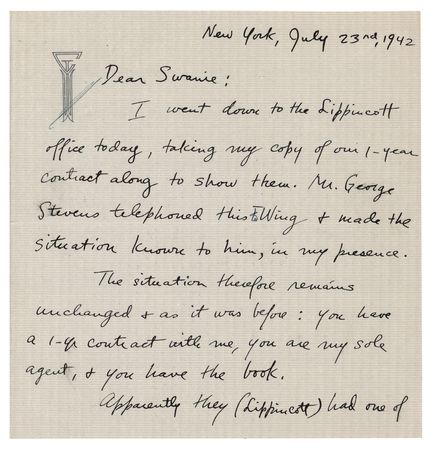 New York, July 23rd, 1942
Dear Swanie:
I went down to the Lippincott
office today, taking my copy of our 1-year
contract along to show them. Mr. George
Stevens telephoned this Wing & made the
situation known to him, in my presence.
The situation therefore remains
unchanged & as it was before: you have
a 1-yr contract with me, you are my sole
agent, & you have the book.
Apparently they (Lippincott) had one of